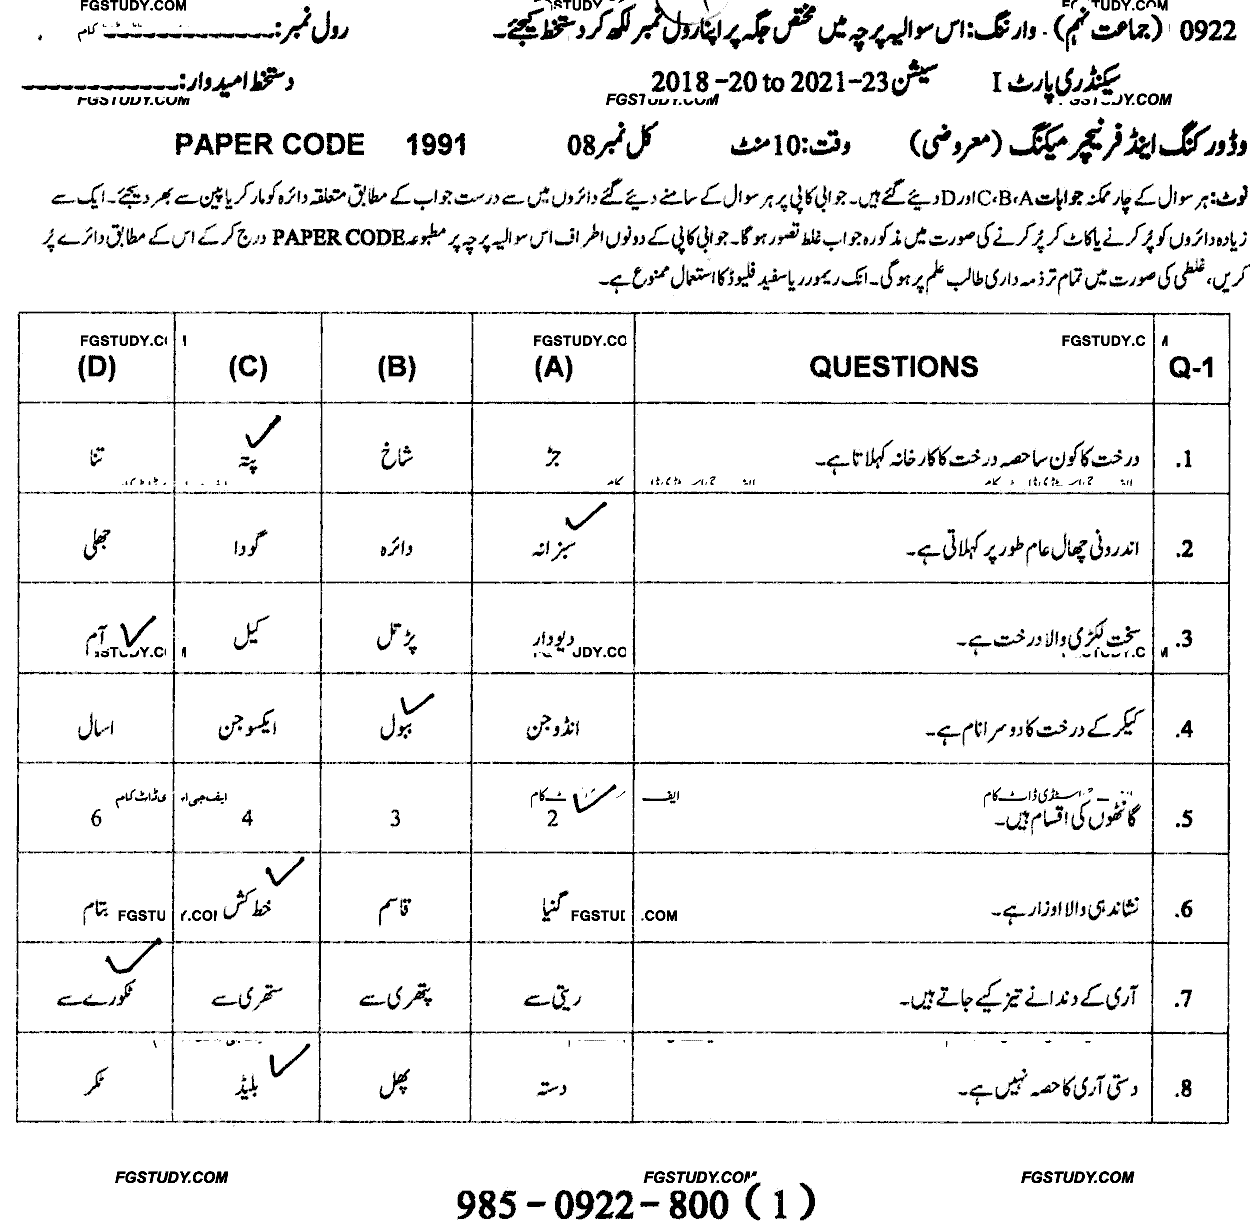 FGSTUDY.COM
0922 (جماعت نہم)۔ وارننگ: اس سوالیہ پرچہ میں مختص جگہ پر اپنا رول نمبر لکھ کر دستخط کیجئے۔ رول نمبر:
سیکنڈری پارٹ I سیشن 2018-20 to 2021-23 دستخط امیدوار:
FGSTUDY.COM FGSTUDY.COM
وڈ ورکنگ اینڈ فرنیچر میکنگ (معروضی) وقت: 10 منٹ کل نمبر 08 PAPER CODE 1991
نوٹ: ہر سوال کے چار ممکنہ جوابات A، B، C اور D دیئے گئے ہیں۔ جوابی کاپی پر ہر سوال کے سامنے دیئے گئے دائروں میں سے درست جواب کے مطابق متعلقہ دائرہ کو مارکر یا پین سے بھر دیجئے۔ ایک سے
زیادہ دائروں کو پُر کرنے یا کاٹ کر پُر کرنے کی صورت میں مذکورہ جواب غلط تصور ہو گا۔ جوابی کاپی کے دونوں اطراف اس سوالیہ پرچہ پر مطبوعہ PAPER CODE درج کر کے اس کے مطابق دائرے پُر
کریں، غلطی کی صورت میں تمام تر ذمہ داری طالب علم پر ہو گی۔ انک ریموور یا سفید فلیوڈ کا استعمال ممنوع ہے۔
Q-1 QUESTIONS (A) (B) (C) (D)
.1 درخت کا کون سا حصہ درخت کا کارخانہ کہلاتا ہے۔ جڑ شاخ پتہ تنا
.2 اندرونی چھال عام طور پر کہلاتی ہے۔ سبزانہ دائرہ گودا جھلی
.3 سخت لکڑی والا درخت ہے۔ دیودار پڑتل کیل آم
.4 کیکر کے درخت کا دوسرا نام ہے۔ انڈوجن ببول ایکسوجن اسال
.5 گانٹھوں کی اقسام ہیں۔ 2 3 4 6
.6 نشاندہی والا اوزار ہے۔ گنیا قاسم خط کش بتام
.7 آری کے دندانے تیز کیے جاتے ہیں۔ ریتی سے پتھری سے ستھری سے ٹکورے سے
.8 دستی آری کا حصہ نہیں ہے۔ دستہ پھل بلیڈ ٹکر
FGSTUDY.COM FGSTUDY.COM FGSTUDY.COM
985-0922-800 (1)